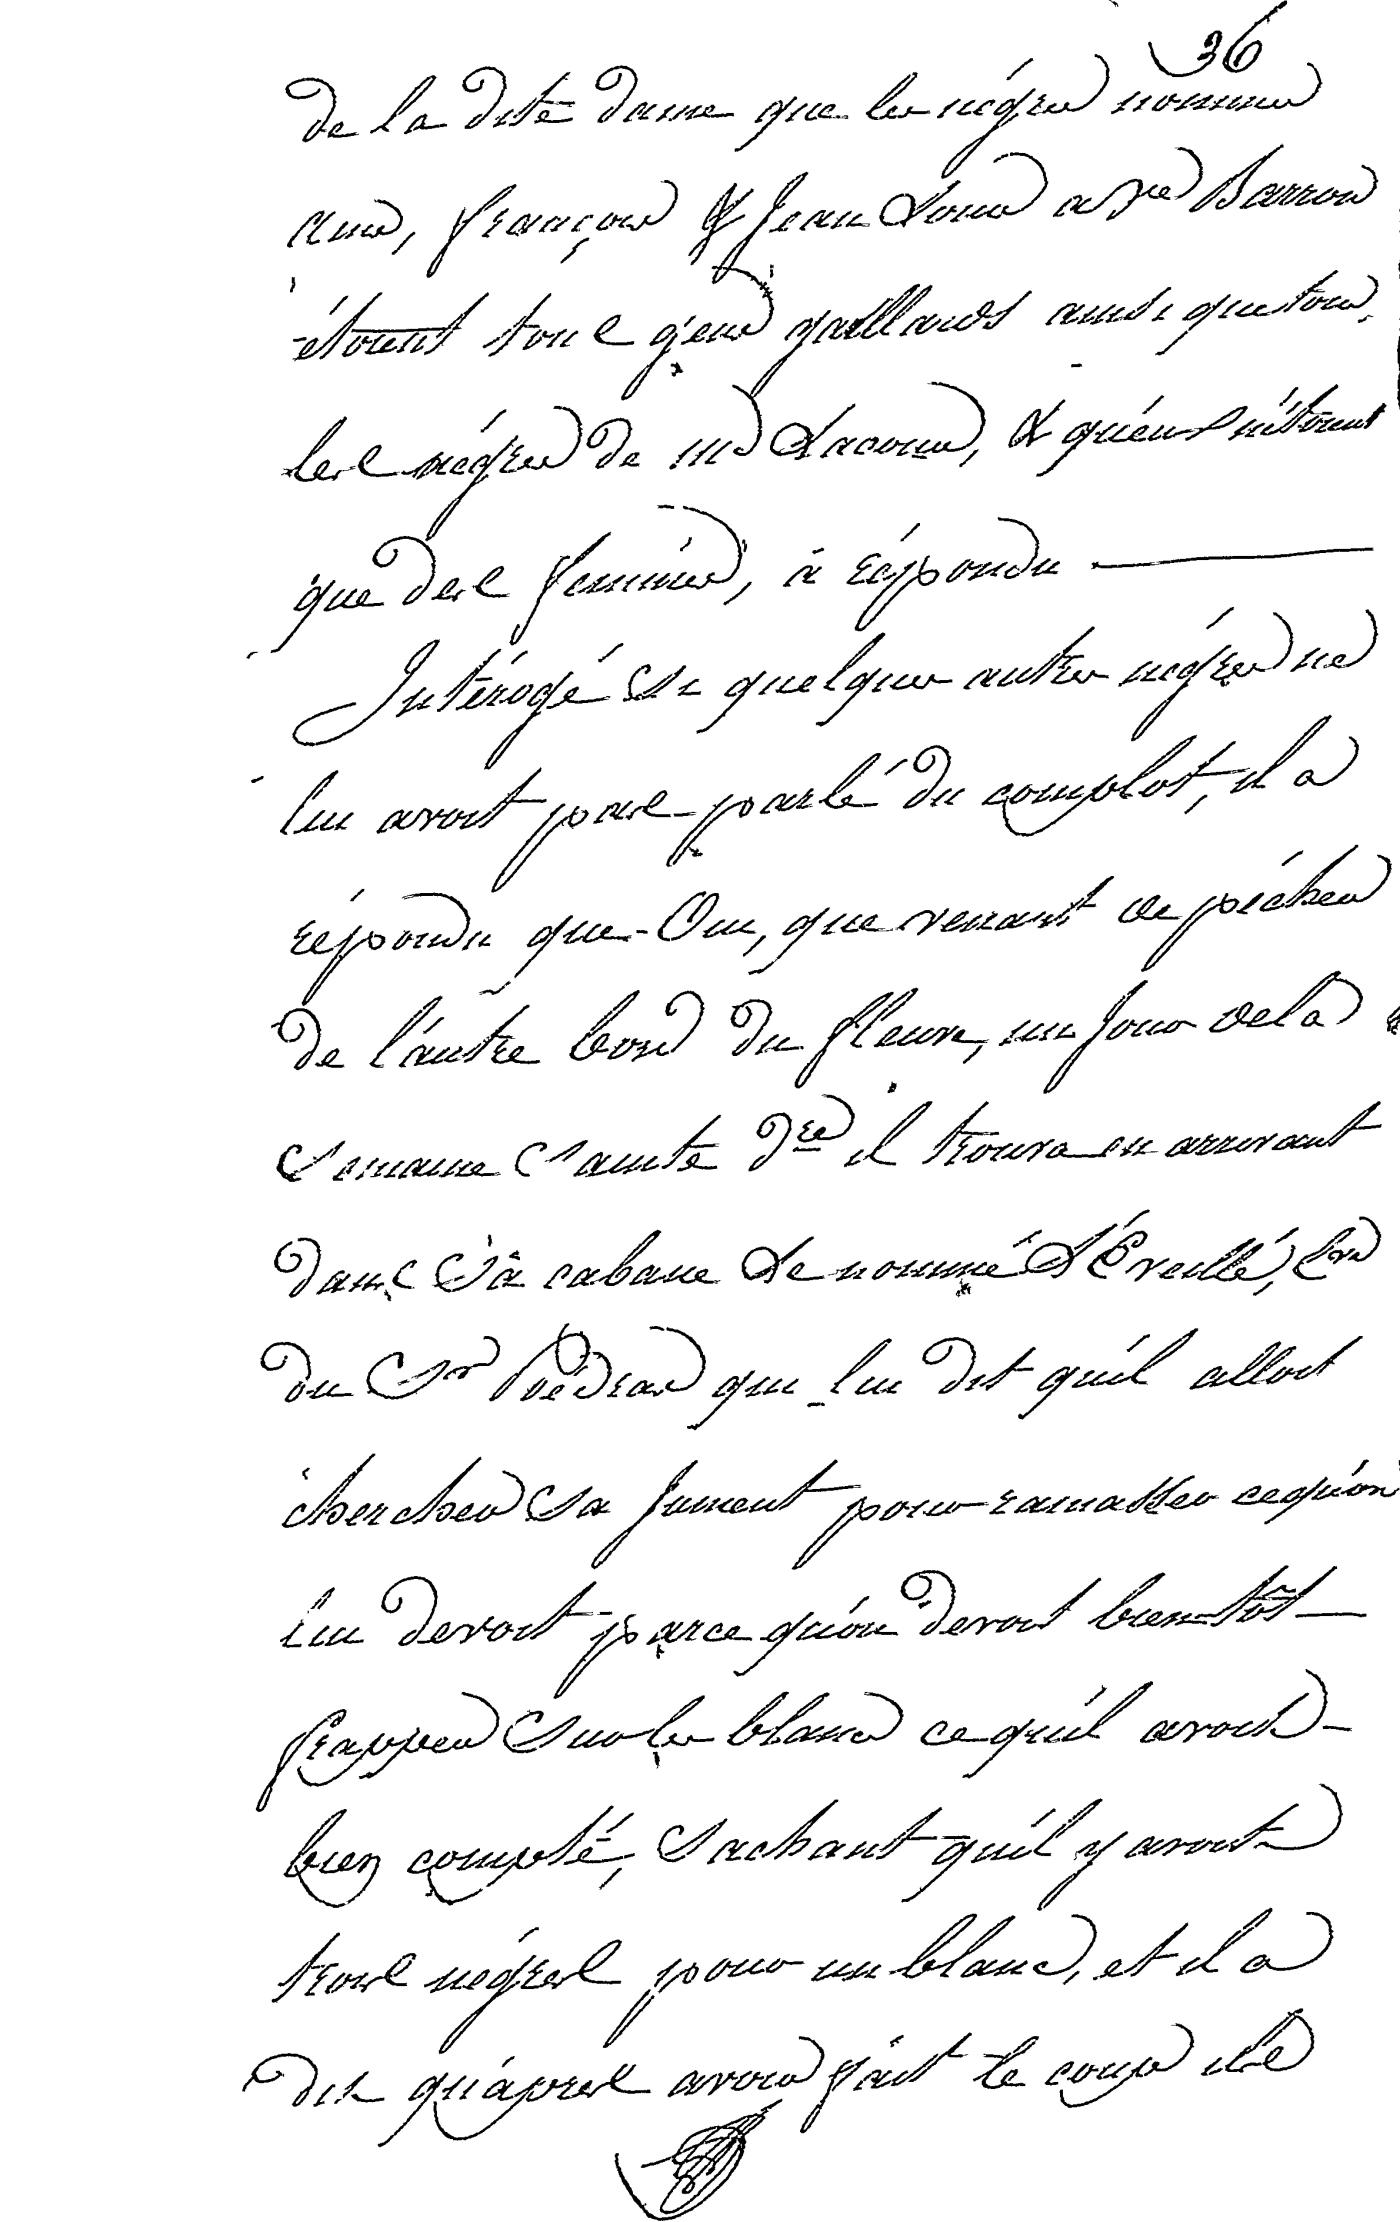 36
de la dite dame que les négres nommés
françois & Jean Louis a Vve Barron
étoient tous gens gaillards ainsi que tous
les négres de Mr Lacour, & qu'eux n'étoient
que des femmes, à répondu
Intérogé Si quelques autres négres ne
lui avoit pas parlé du complot, il a
répondu que Oui, que venant de pécher
de l'autre bord du fleuve, un Jour de la
Semaine Sainte dre il trouva en arrivant
dans Sa cabane Le nommé L'Eveillé,
du Sr Poëdras qui lui dit qu'il alloit
chercher Sa Jument pour ramasser cequ'on
lui devoit parce qu'on devoit bientôt
frapper Sur les blancs ce qu'il avoit
bien compté, Sachant qu'il y avoit
trois négres pour un blanc, et il a
dit qu'apres avoir fait le coup ils